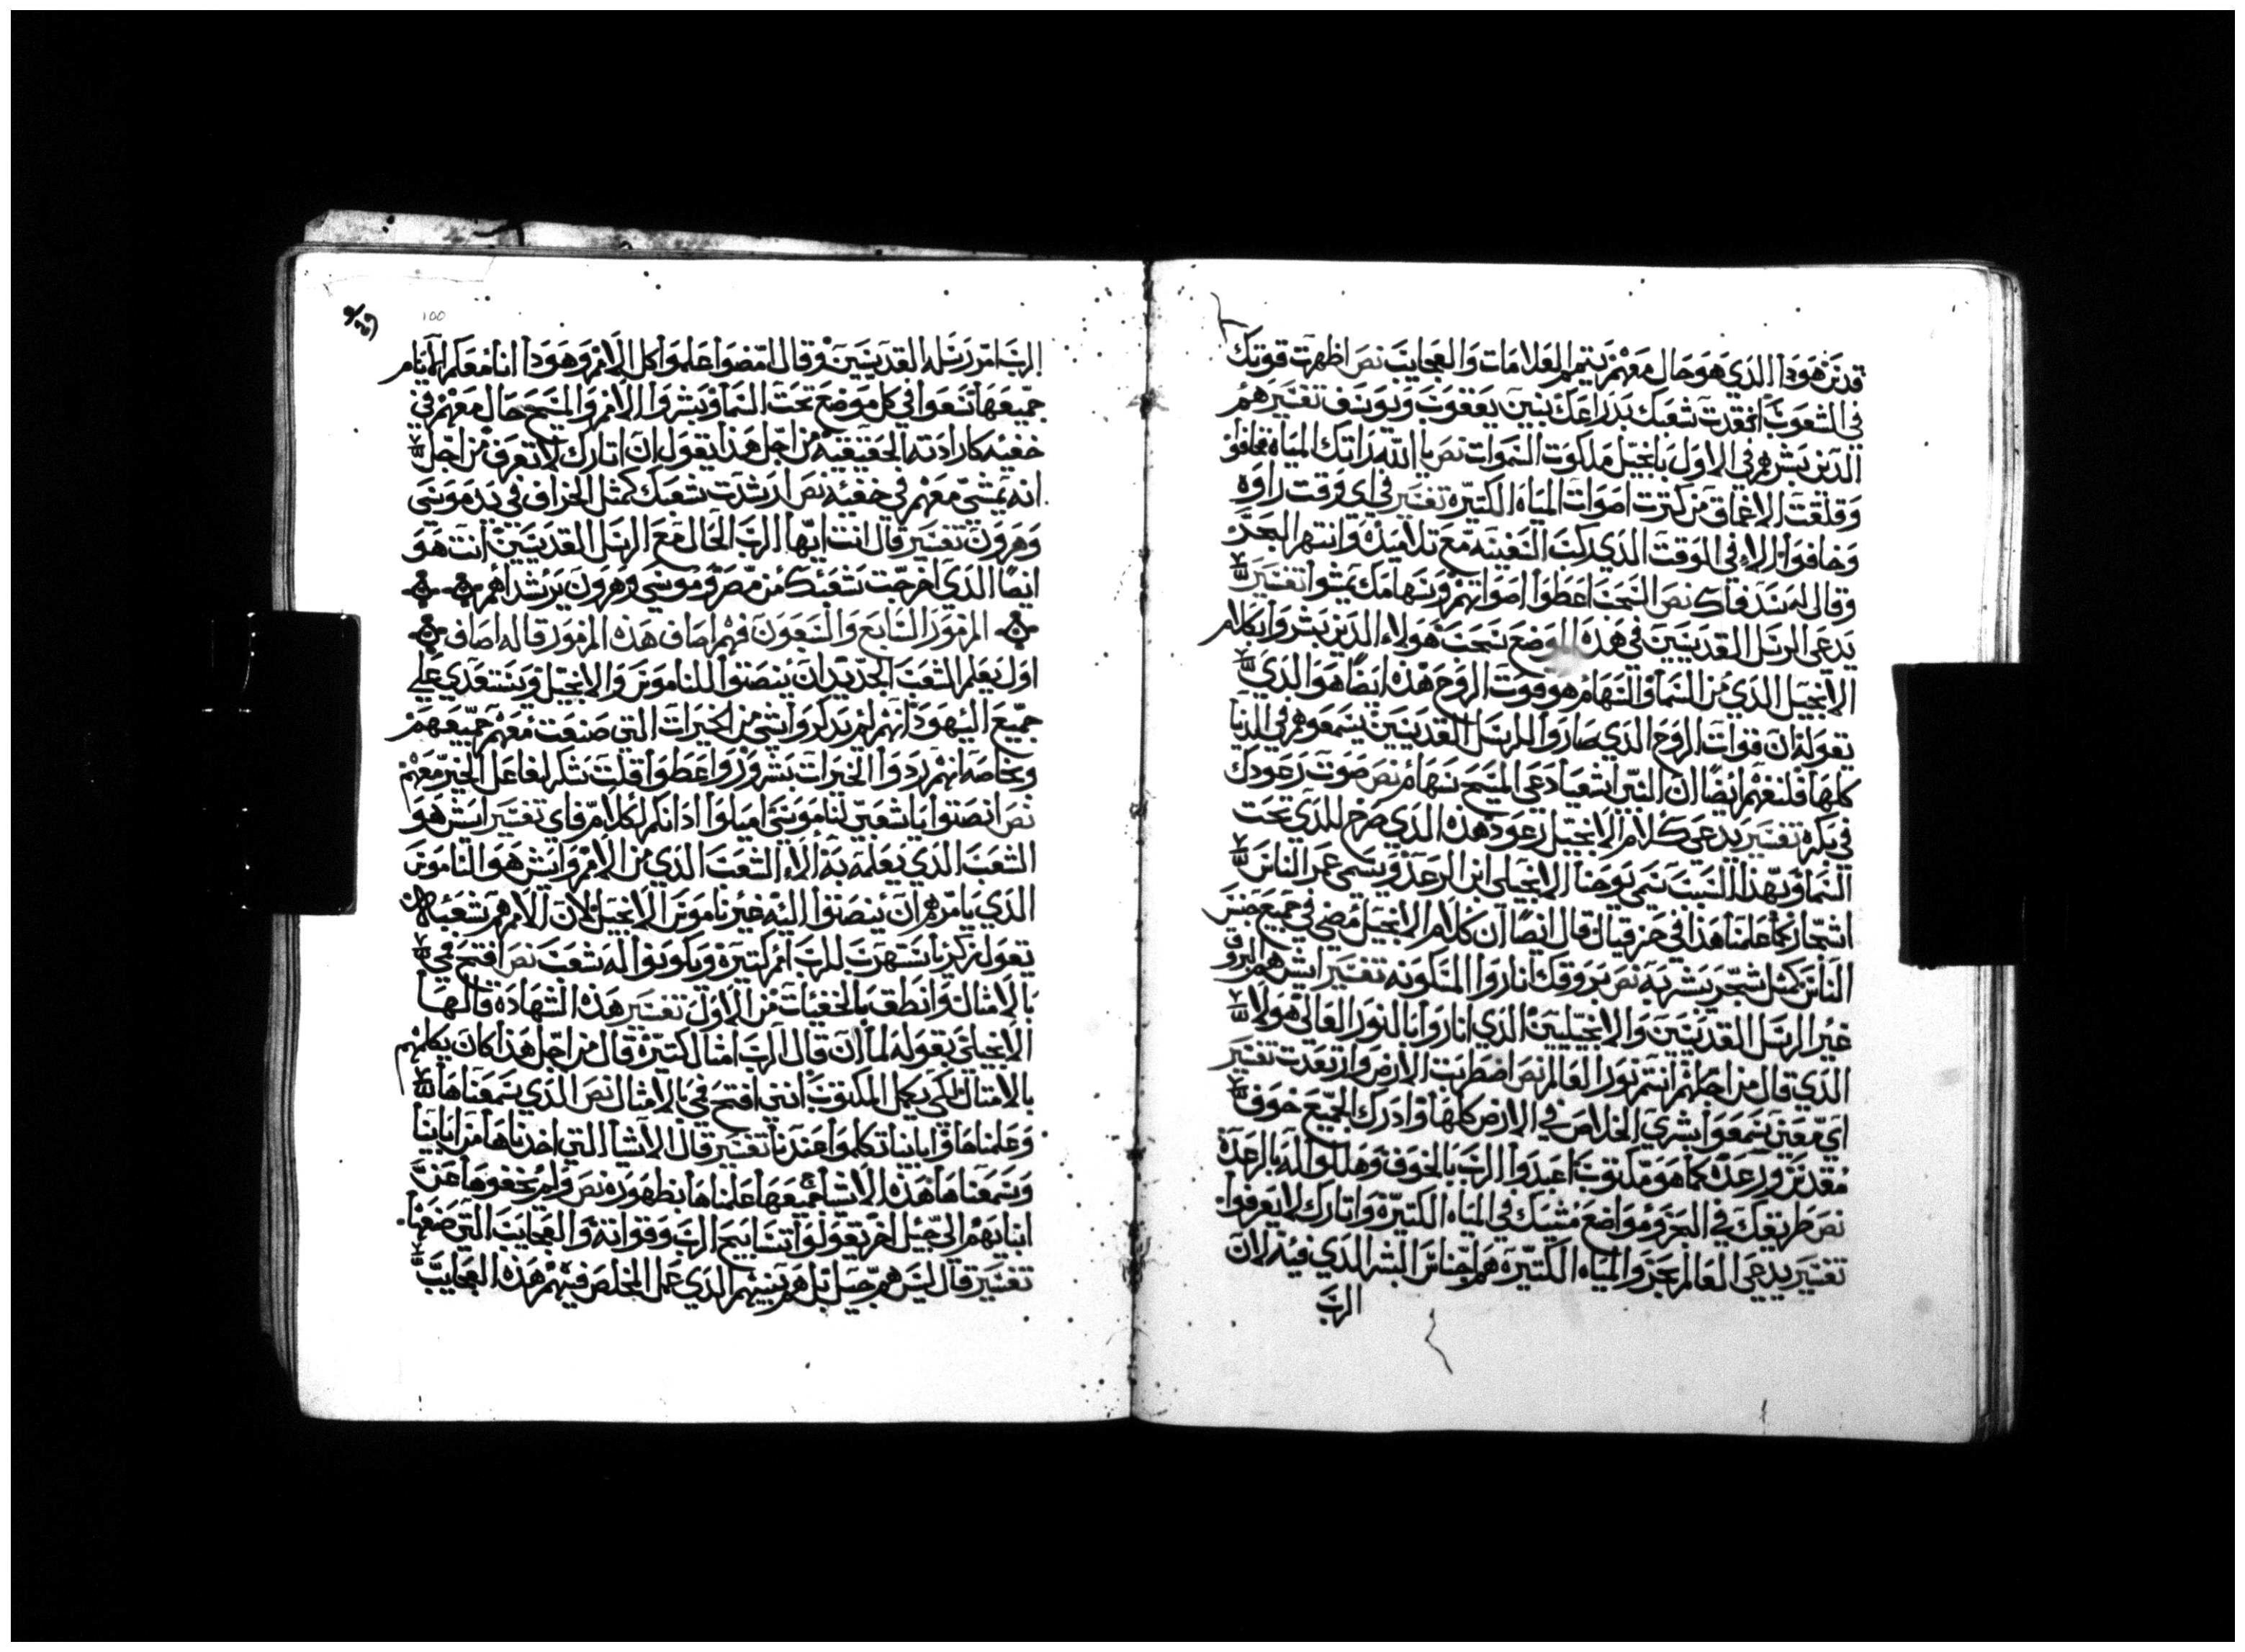 قدس هودا الذي هو حال معهم يتمم العلامات والعجايب نص اظهرت قوتك
في الشعوب افتقدت شعبك بدراعك بنين يعقوب ويوسف تفسير هم
الذين بشرهم في الاول بانجيل ملكوت السموات نص يا الله راتك المياه فخافوا
وقلقت الاعماق من كترت اصوات المياه الكتيره تفسير في اي وقت راوه
وخافوا الا في الوقت الذي ركب السفينه مع تلاميذه وانتهر البحر
وقال له سد فاك نص السحب اعطوا اصواتهم وسهامك يمشوا تفسير
يدعي الرسل القديسين في هذه الموضع سحب هولاء الذين بشروا بكلام
الانجيل الذي من السما والسهام هو قوت الروح هذه ايضا هو الذي
تقوله ان قوات الروح الذي صاروا للرسل القديسين يسمعوهم في الدنيا
كلها فلنفهم ايضا ان النبي اشعيا دعي المسيح سهام نص صوت رعودك
في بكره تفسير يدعي كلام الانجيل رعود هذه الذي صرخ للذي تحت
السما وبهذا السبب سمي يوحنا الانجيلي ابن الرعد ويسمي عمر الناس
اشجار كما علمنا هذا في حزقيال قال ايضا ان كلام الانجيل مضي في جميع جنس
الناس كمثل شجر بشر به نص بروقك اناروا المسكونه تفسير ايش هم البروق
غير الرسل القديسين والانجيليين الذي اناروا بالنور العالي هولا
الذي قال من اجلهم انتم نور العالم نص اضطربت الارض وارتعدت تفسير
اي معين سمعوا بشري الخلاص في الارض كلها وادرك الجميع خوف
مقدس ورعده كما هو مكتوب اعبدوا الرب بالخوف وهللوا له بالرعده
نص طريقك في البحر ومواضع مشيك في المياه الكتيره واتارك لا يعرفوا
تفسير يدعي العالم بحر والمياه الكتيره هم اجناس البشر الذي فيه لان
الرب
100
الرب امر رسله القديسين وقال امضوا علموا كل الامم وهودا انا معكم الايام
جميعها تسعوا في كل موضع تحت السما وبشروا الامم والمسيح حال معهم في
خفيه كارادته الحقيقيه من اجل هذا يقول ان اتارك لا يعرف من اجل
انه يمشي معهم في خفيه نص ارشدت شعبك كمثل الخراف في يد موسي
وهرون تفسير قال انت ايها الرب الحال مع الرسل القديسين انت هو
ايضا الذي اخرجت شعبك من مصر وموسي وهرون يرشداهم
المزمور السابع والسبعون فهم اصاف هذه المزمور قاله اصاف
اول يعلم الشعب الجديد ان ينصتوا للناموس والانجيل ويستعدي علي
جميع اليهود انهم لم يذكروا شي من الخيرات التي صنعت معهم جميعهم
وبخاصه انهم ردوا الخيرات بشرور واعطوا قلت شكر لفاعل الخير معهم
نص انصتوا يا شعبي لناموسي اميلوا ادانكم لكلام فاي تفسير ايش هو
الشعب الذي يعلمه به الا الشعب الذي من الامم وايش هو الناموس
الذي يامرهم ان ينصتوا اليه غير ناموس الانجيل لان الامم هم شعبه
يقول زكريا ستهرب للرب امم كتيره ويكونوا له شعب نص افتح في
بالامثال وانطق بالخفيات من الاول تفسير هذه الشهاده قالها
الانجيلي بقوله لما ان قال الرب امثال كتيره قال من اجل هذا كان يكلمهم
بالامثال لكي يكمل المكتوب انني افتح في بالامثال نص الذي سمعناها
وعلمناها واباينا تكلموا عندنا تفسير قال الاشيا التي اخدناها من ابايينا
وسمعناها هذه الاشيا جميعها علمناها بظهوره نص ولم يخفوها عن
ابنايهم الي جيل اخر يقولوا تسابيح الرب وقواته والعجايب التي صنعها
تفسير قال ليس هم جيل بل هو بنيهم الذي عمل المخلص فيهم هذه العجايب